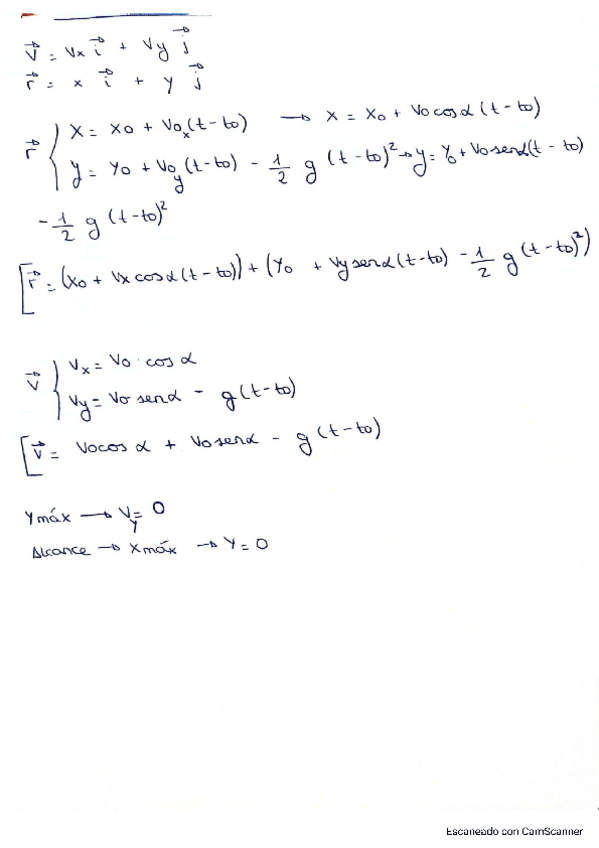 v⃗ = Vx i⃗ + Vy j⃗
r⃗ = x i⃗ + y j⃗
r⃗ { X = X0 + V0x (t-t0) → X = X0 + V0 cos α (t-t0)
y = Y0 + V0y (t-t0) - 1/2 g (t-t0)² → y = Y0 + V0 sen α (t-t0)
- 1/2 g (t-t0)²
[ r⃗ = (X0 + Vx cos α (t-t0)) + (Y0 + Vy sen α (t-t0) - 1/2 g (t-t0)²)
v⃗ { Vx = V0 · cos α
Vy = V0 sen α - g (t-t0)
[ v⃗ = V0 cos α + V0 sen α - g (t-t0)
Ymáx → Vy = 0
Alcance → Xmáx → Y = 0
Escaneado con CamScanner